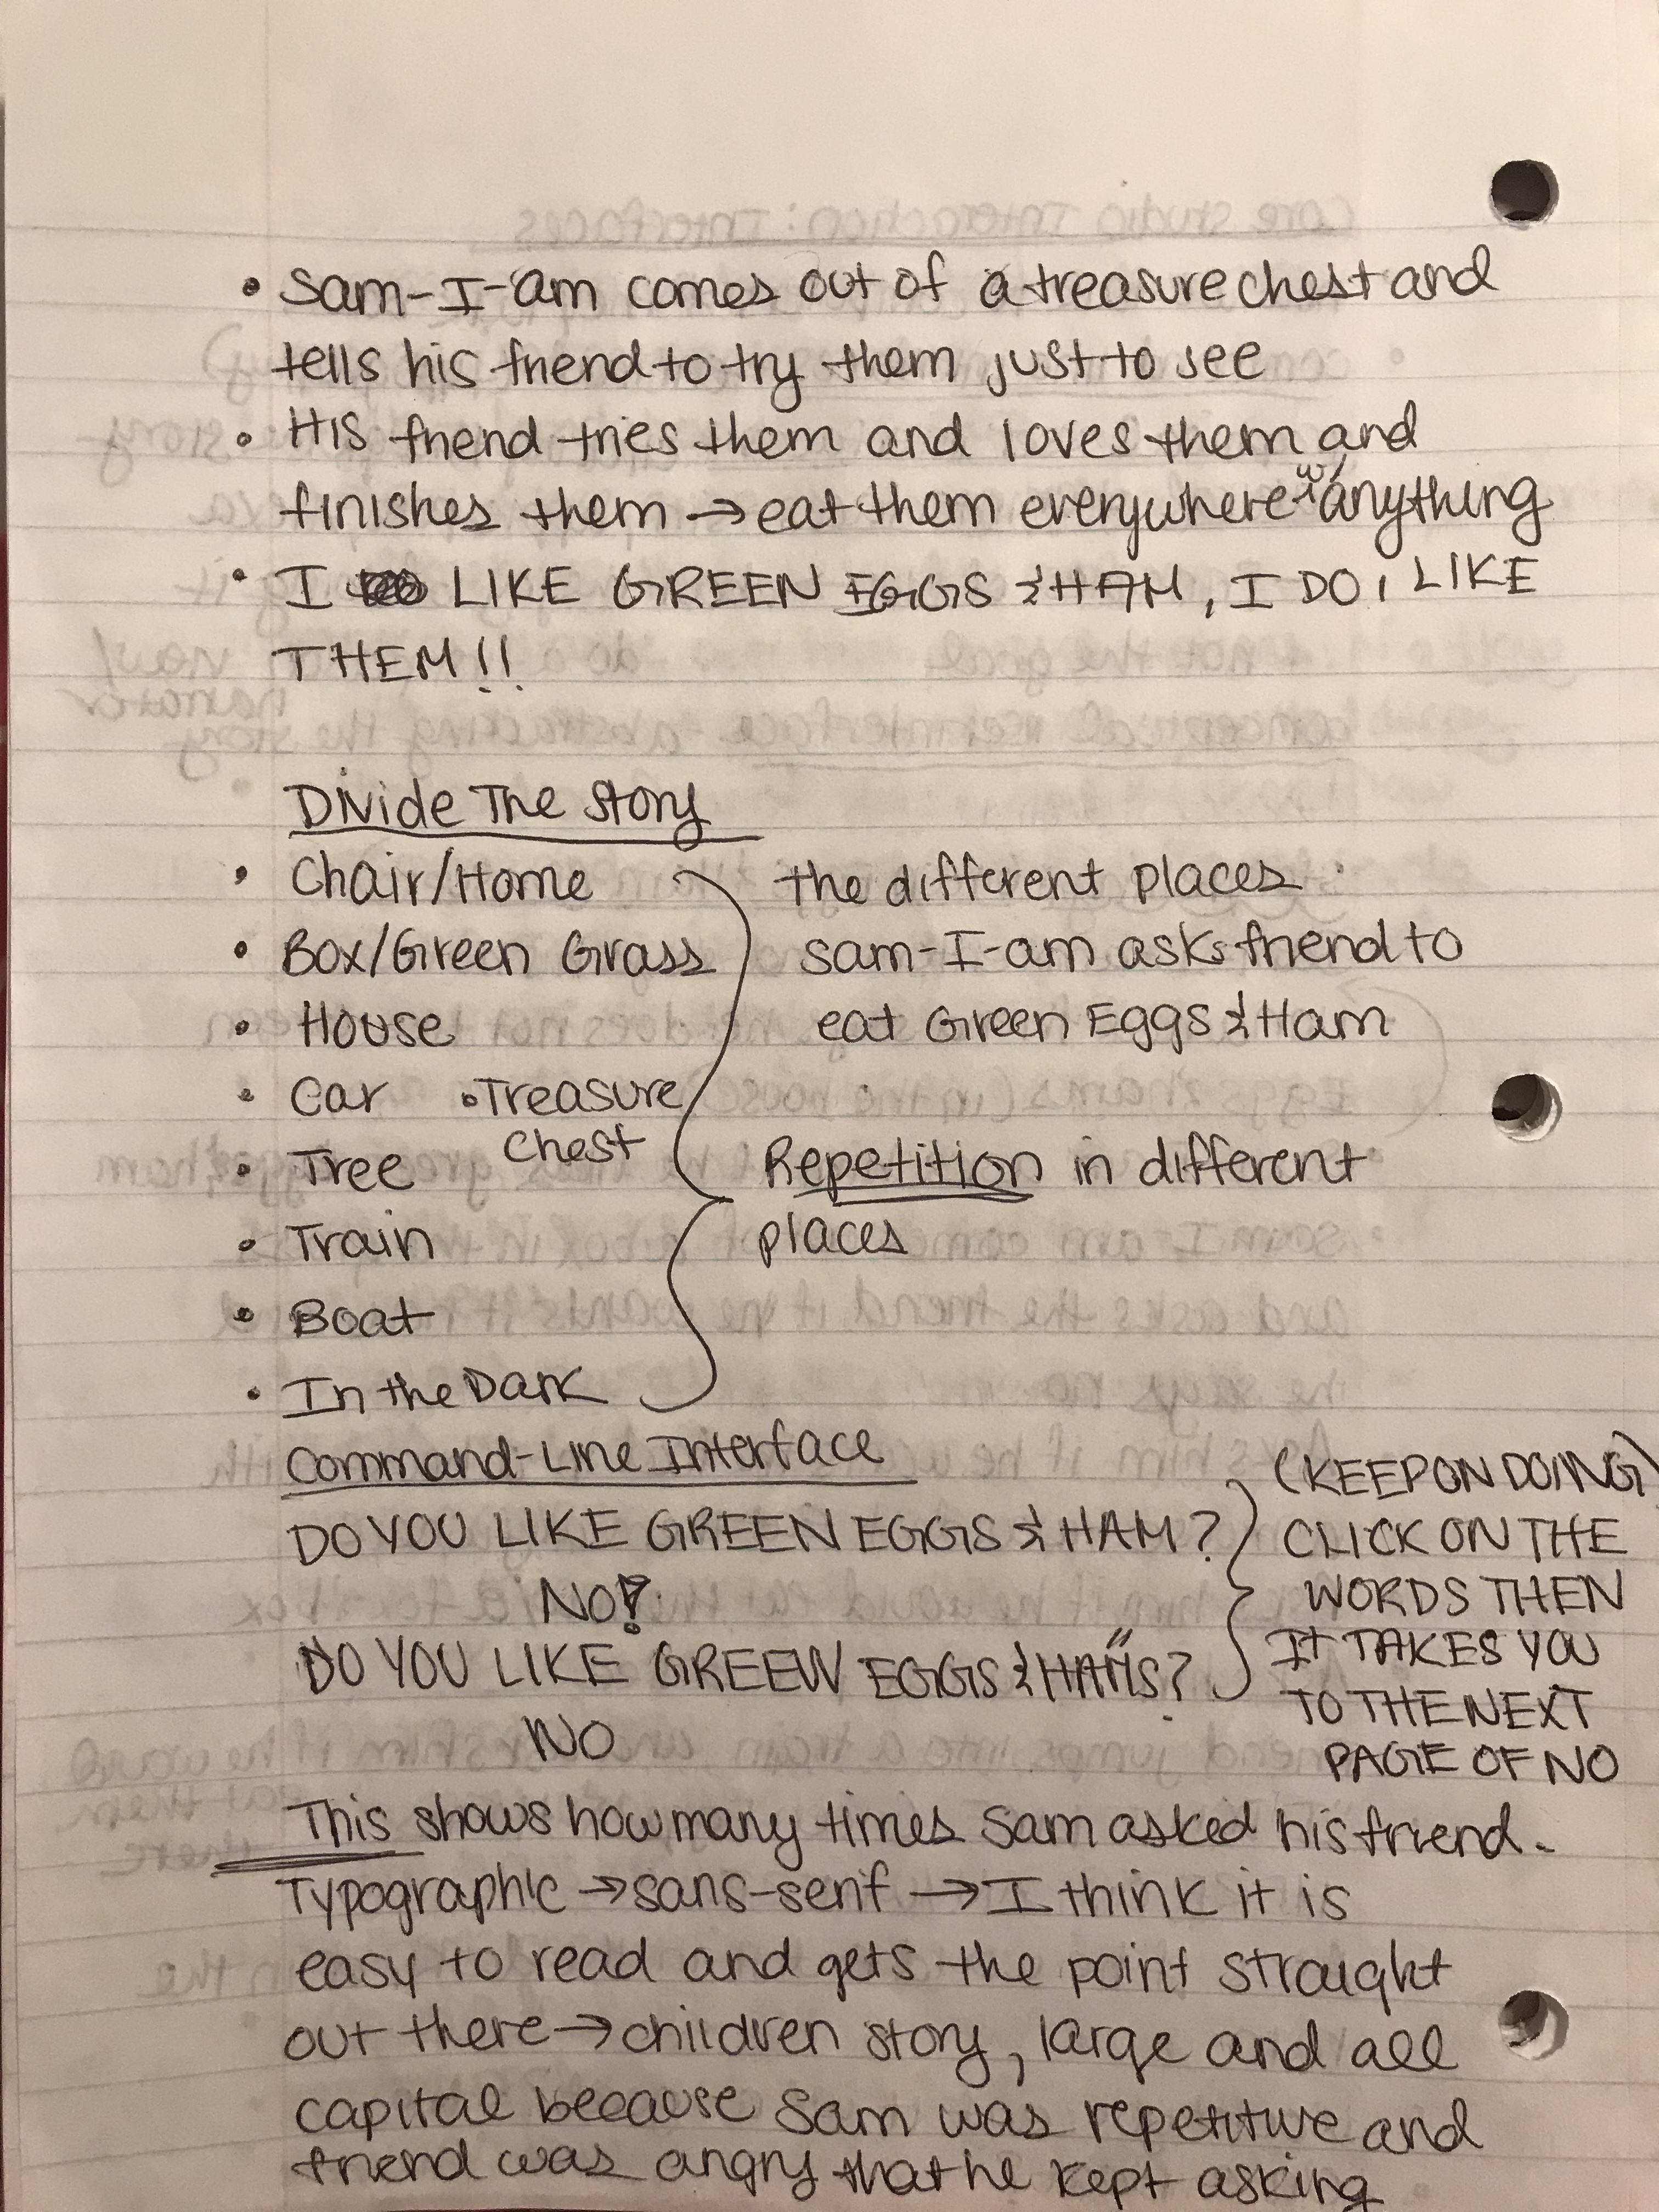 • Sam-I-am comes out of a treasure chest and
tells his friend to try them just to see
• His friend tries them and loves them and
finishes them → eat them everywhere w/ anything
• I LIKE GREEN EGGS & HAM, I DO, LIKE
THEM!!
Divide The Story
• Chair/Home
• Box/Green Grass
• House
• Car • Treasure
Chest
• Tree
• Train
• Boat
• In the Dark
the different places
sam-I-am asks friend to
eat Green Eggs & Ham
Repetition in different
places
Command-Line Interface
DO YOU LIKE GREEN EGGS & HAM?
NO!
DO YOU LIKE GREEN EGGS & HAMS?
NO
(KEEP ON DOING)
CLICK ON THE
WORDS THEN
It TAKES YOU
TO THE NEXT
PAGE OF NO
This shows how many times Sam asked his friend.
Typographic → sans-serif → I think it is
easy to read and gets the point straight
out there → children story, large and all
capital because Sam was repetitive and
friend was angry that he kept asking